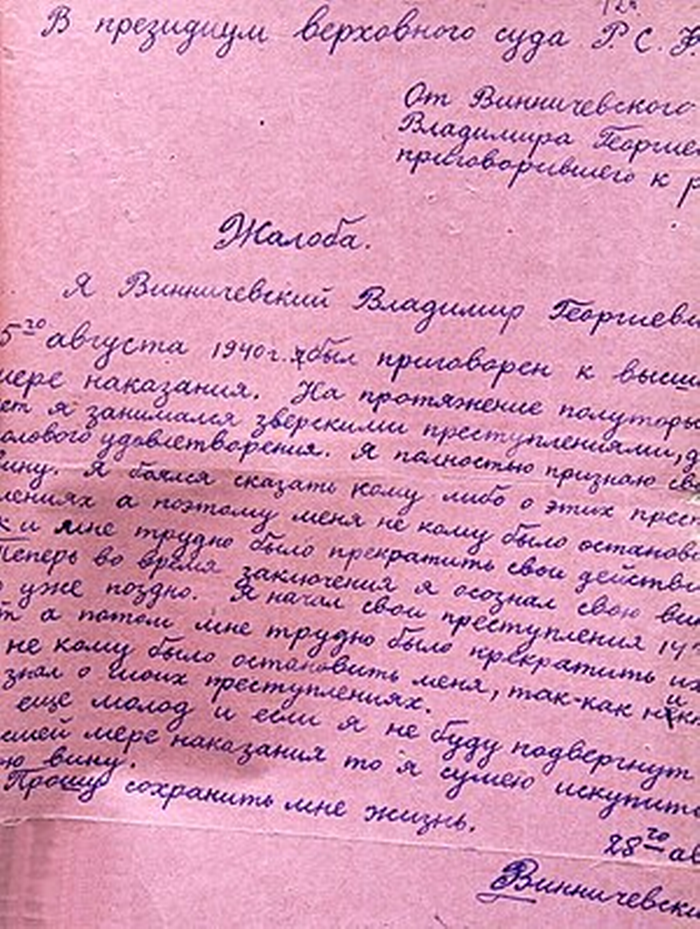 В президиум верховного суда Р. С. Ф
От Винничевского
Владимира Георгие
приговорившего к р
Жалоба.
Я Винничевский Владимир Георгиеви
5го августа 1940г. я был приговорен к высш
мере наказания. На протяжение полуторы
ет я занимался зверскими преступлениями, д
олового удовлетворения. Я полностью признаю сво
вину. Я боялся сказать кому либо о этих прест
лениях а поэтому меня не кому было останови
к и мне трудно было прекратить свои действ
Теперь во время заключения я осознал свою вин
уже поздно. Я начал свои преступления
т а потом мне трудно было прекратить их
не кому было остановить меня, так-как ни
знал о моих преступлениях.
еще молод и если я не буду подвергнут
сшей мере наказания то я сумею искупит
ю вину.
Прошу сохранить мне жизнь.
28го ав
Винничевски